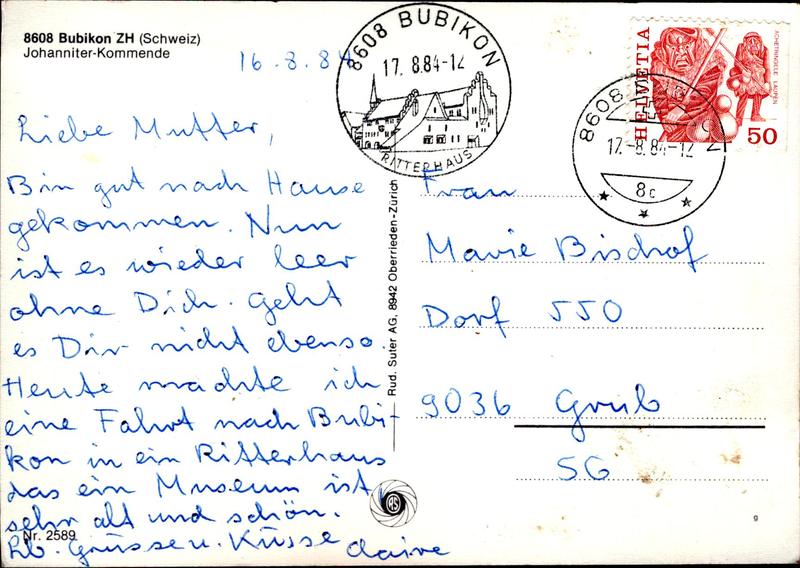 8608 Bubikon ZH (Schweiz)
Johanniter-Kommende
16.8.84
8608 BUBIKON
17.8.84-12
RITTERHAUS
HELVETIA
ACHETRINGELE LAUPEN
50
8608
17.-8.84-12
8c
Liebe Mutter,
Bin gut nach Hause
gekommen. Nun
ist es wieder leer
ohne Dich. Geht
es Dir nicht ebenso.
Heute machte ich
eine Fahrt nach Bubi-
kon in ein Ritterhaus
das ein Museum ist,
sehr alt und schön.
Lb. Grüsse u. Küsse Claire
Nr. 2589
Rud. Suter AG, 8942 Oberrieden-Zürich
Frau
Marie Bischof
Dorf 550
9036 Grub
SG
9